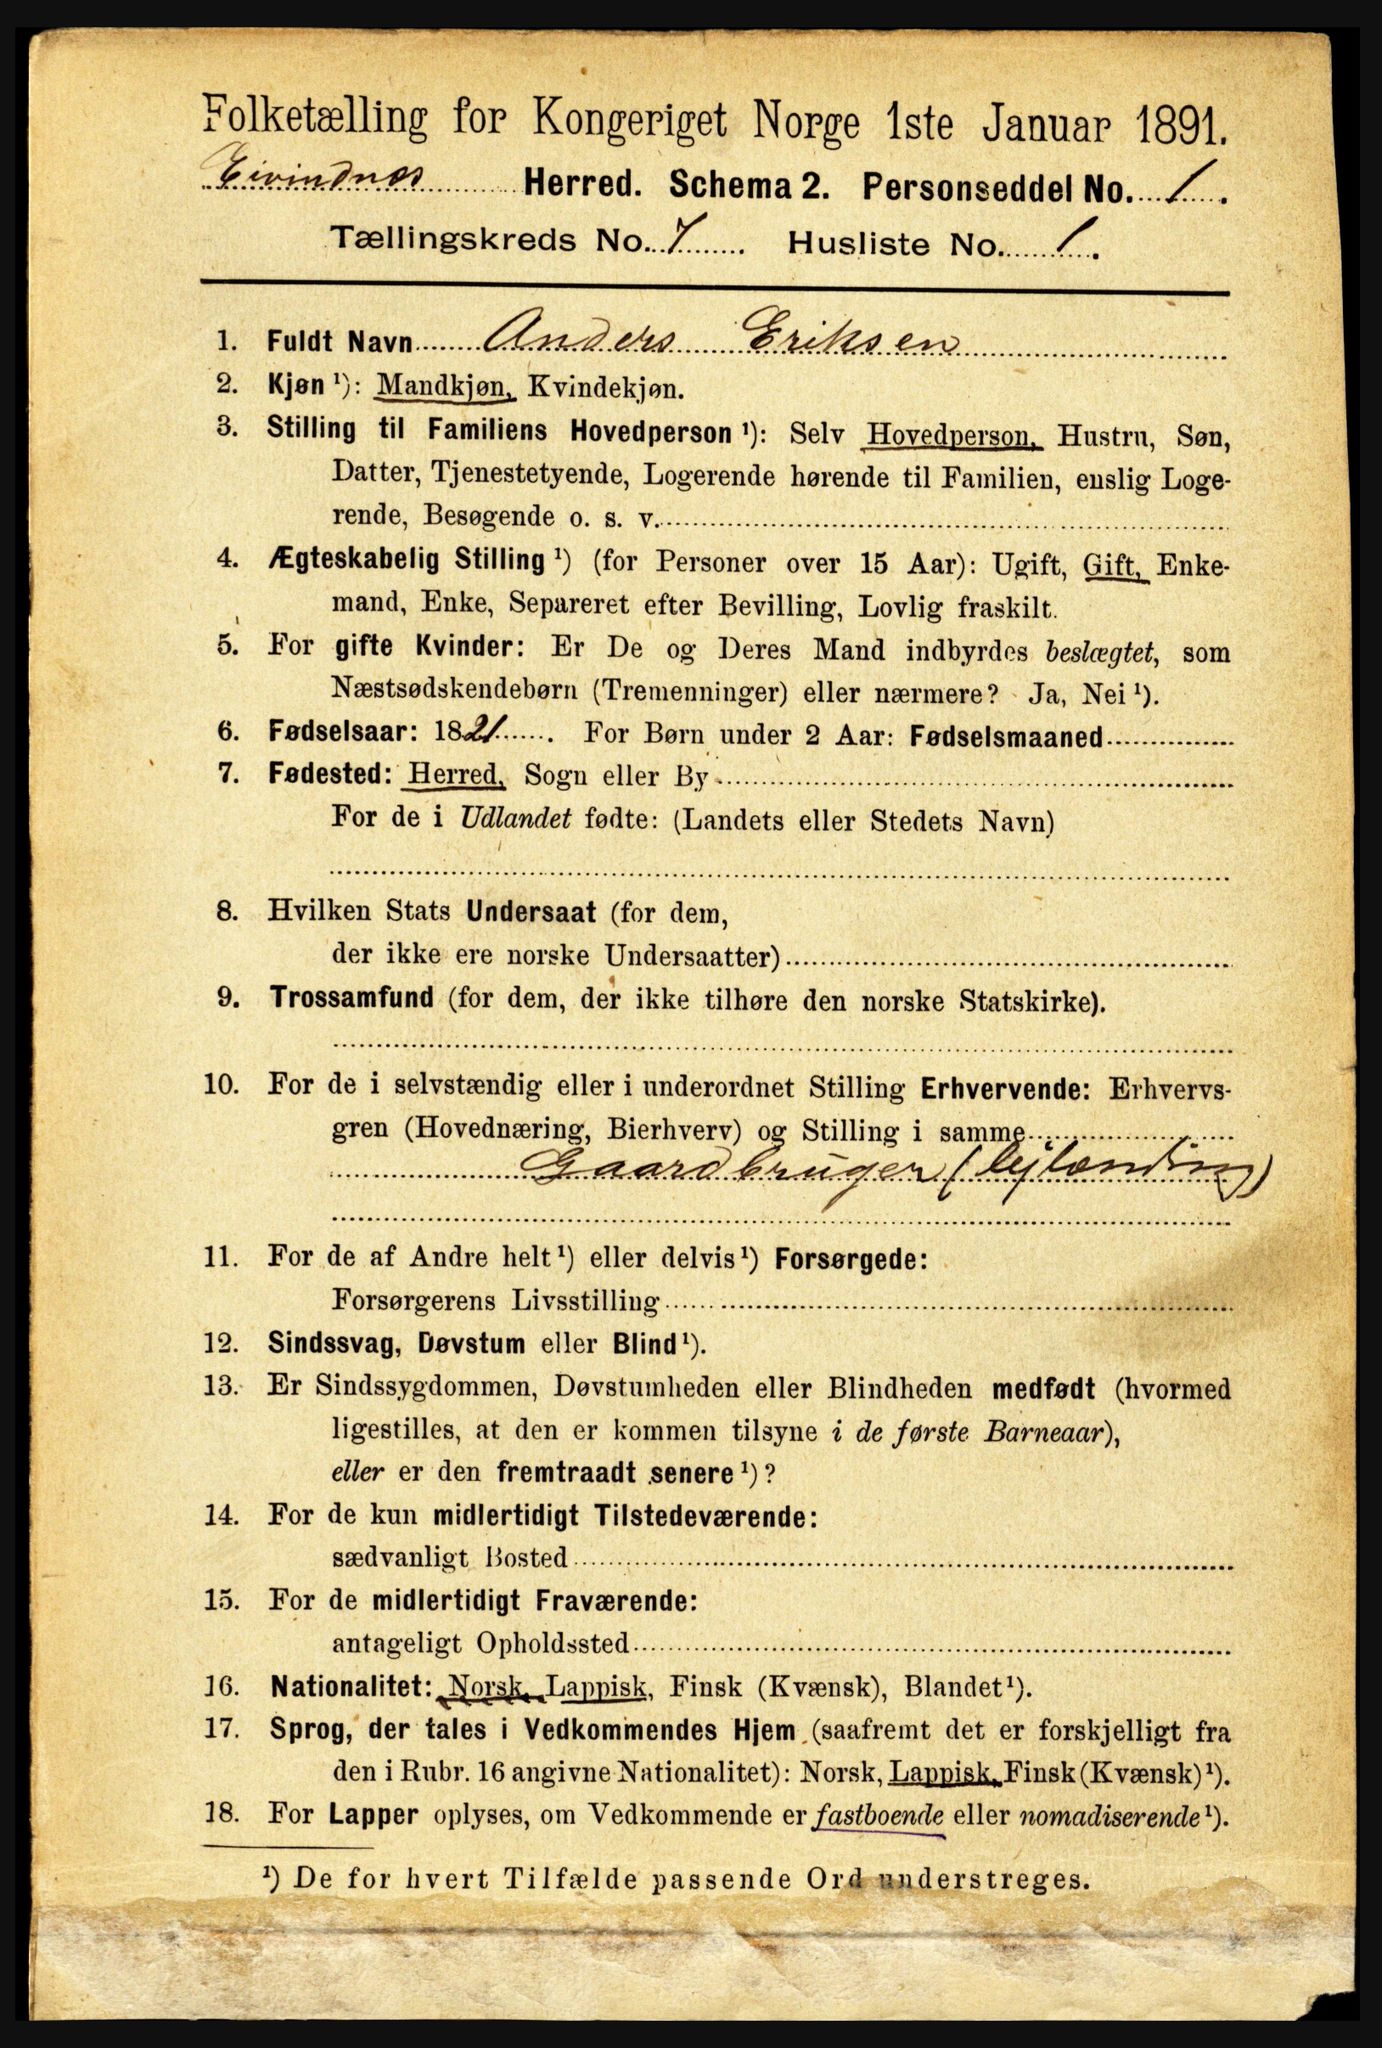 Folketælling for Kongeriget Norge 1ste Januar 1891.
Eivindnæs Herred. Schema 2. Personseddel No. 1.
Tællingskreds No. 7. Husliste No. 1.
1. Fuldt Navn Anders Eriksen
2. Kjøn ¹): Mandkjøn, Kvindekjøn.
3. Stilling til Familiens Hovedperson ¹): Selv Hovedperson, Hustru, Søn,
Datter, Tjenestetyende, Logerende hørende til Familien, enslig Loge-
rende, Besøgende o. s. v.
4. Ægteskabelig Stilling ¹) (for Personer over 15 Aar): Ugift, Gift, Enke-
mand, Enke, Separeret efter Bevilling, Lovlig fraskilt.
5. For gifte Kvinder: Er De og Deres Mand indbyrdes beslægtet, som
Næstsødskendebørn (Tremenninger) eller nærmere? Ja, Nei ¹).
6. Fødselsaar: 1821. For Børn under 2 Aar: Fødselsmaaned
7. Fødested: Herred, Sogn eller By
For de i Udlandet fødte: (Landets eller Stedets Navn)
8. Hvilken Stats Undersaat (for dem,
der ikke ere norske Undersaatter)
9. Trossamfund (for dem, der ikke tilhøre den norske Statskirke).
10. For de i selvstændig eller i underordnet Stilling Erhvervende: Erhvervs-
gren (Hovednæring, Bierhverv) og Stilling i samme
Gaardbruger (lejlænding)
11. For de af Andre helt ¹) eller delvis ¹) Forsørgede:
Forsørgerens Livsstilling
12. Sindssvag, Døvstum eller Blind ¹).
13. Er Sindssygdommen, Døvstumheden eller Blindheden medfødt (hvormed
ligestilles, at den er kommen tilsyne i de første Barneaar),
eller er den fremtraadt senere ¹)?
14. For de kun midlertidigt Tilstedeværende:
sædvanligt Bosted
15. For de midlertidigt Fraværende:
antageligt Opholdssted
16. Nationalitet: Norsk, Lappisk, Finsk (Kvænsk), Blandet ¹).
17. Sprog, der tales i Vedkommendes Hjem (saafremt det er forskjelligt fra
den i Rubr. 16 angivne Nationalitet): Norsk, Lappisk, Finsk (Kvænsk) ¹).
18. For Lapper oplyses, om Vedkommende er fastboende eller nomadiserende ¹).
¹) De for hvert Tilfælde passende Ord understreges.